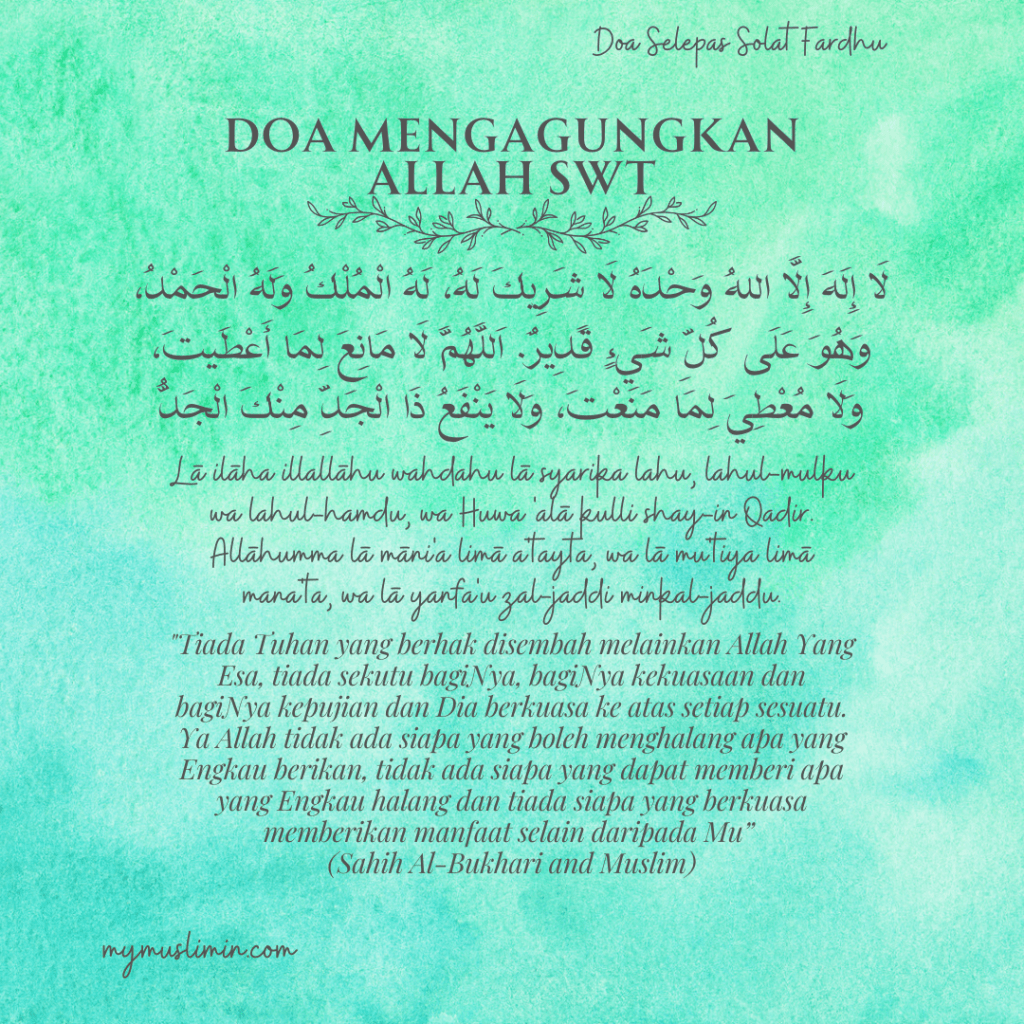 Doa Selepas Solat Fardhu
DOA MENGAGUNGKAN
ALLAH SWT
لَا إِلَهَ إِلَّا اللهُ وَحْدَهُ لَا شَرِيكَ لَهُ، لَهُ الْمُلْكُ وَلَهُ الْحَمْدُ،
وَهُوَ عَلَى كُلّ شَيءٍ قًدِيرٌ. اَللَّهُمَّ لَا مَانِعَ لِمَا أَعْطَيتَ،
وَلَا مُعْطِيَ لِمَا مَنَعْتَ، وَلَا يَنْفَعُ ذَا الْجَدِّ مِنْكَ الْجَدُّ
Lā ilāha illallāhu wahdahu lā syarika lahu, lahul-mulku
wa lahul-hamdu, wa Huwa 'alā kulli shay-in Qadir.
Allāhumma lā māni'a limā a'tayta, wa lā mu'tiya limā
mana'ta, wa lā yanfa'u zal-jaddi minkal-jaddu.
"Tiada Tuhan yang berhak disembah melainkan Allah Yang
Esa, tiada sekutu bagiNya, bagiNya kekuasaan dan
bagiNya kepujian dan Dia berkuasa ke atas setiap sesuatu.
Ya Allah tidak ada siapa yang boleh menghalang apa yang
Engkau berikan, tidak ada siapa yang dapat memberi apa
yang Engkau halang dan tiada siapa yang berkuasa
memberikan manfaat selain daripada Mu”
(Sahih Al-Bukhari and Muslim)
mymuslimin.com